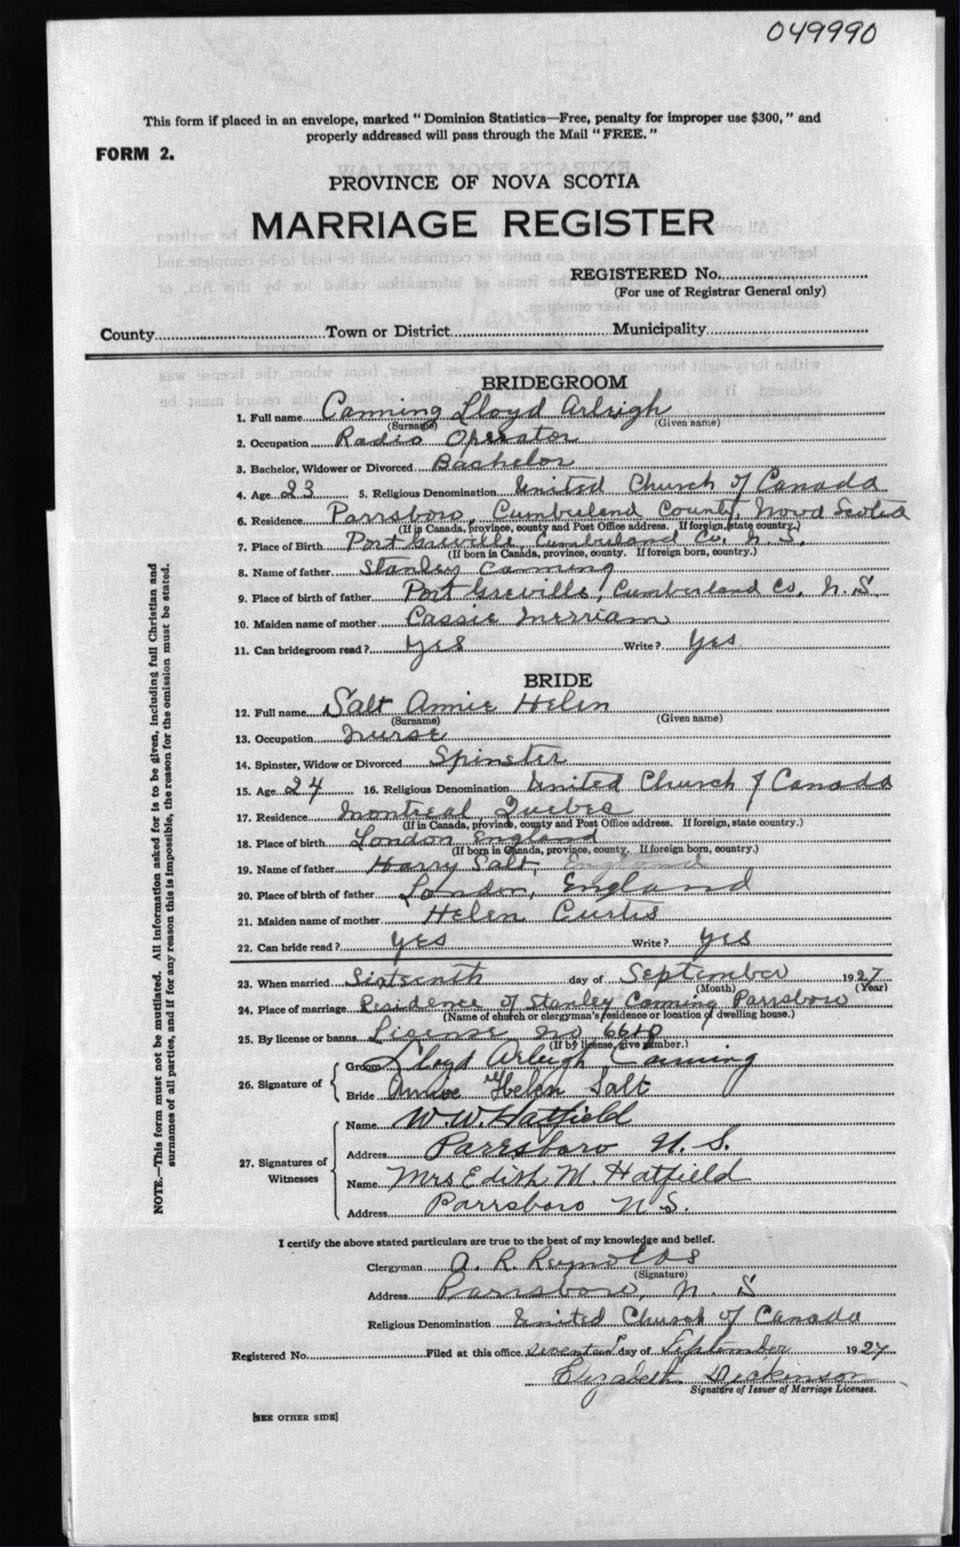 049990
This form if placed in an envelope, marked "Dominion Statistics—Free, penalty for improper use $300," and
properly addressed will pass through the Mail "FREE."
FORM 2.
PROVINCE OF NOVA SCOTIA
MARRIAGE REGISTER
REGISTERED No.
(For use of Registrar General only)
County Town or District Municipality
BRIDEGROOM
1. Full name Canning Lloyd Arleigh
(Surname) (Given name)
2. Occupation Radio Operator
3. Bachelor, Widower or Divorced Bachelor
4. Age 23 5. Religious Denomination United Church of Canada
6. Residence Parrsboro, Cumberland County, Nova Scotia
(If in Canada, province, county and Post Office address. If foreign, state country.)
7. Place of Birth Port Greville, Cumberland Co, N.S.
(If born in Canada, province, county. If foreign born, country.)
8. Name of father Stanley Canning
9. Place of birth of father Port Greville, Cumberland Co, N.S.
10. Maiden name of mother Cassie Merriam
11. Can bridegroom read? yes Write? yes
BRIDE
12. Full name Salt Annie Helen
(Surname) (Given name)
13. Occupation Nurse
14. Spinster, Widow or Divorced Spinster
15. Age 24 16. Religious Denomination United Church of Canada
17. Residence Montreal, Quebec
(If in Canada, province, county and Post Office address. If foreign, state country.)
18. Place of birth London England
(If born in Canada, province, county. If foreign born, country.)
19. Name of father Harry Salt, England
20. Place of birth of father London, England
21. Maiden name of mother Helen Curtis
22. Can bride read? yes Write? yes
23. When married Sixteenth day of September 1927
(Month) (Year)
24. Place of marriage Residence of Stanley Canning Parrsboro
(Name of church or clergyman's residence or location of dwelling house.)
25. By license or banns License no
(If by license, give number.)
26. Signature of
Groom Lloyd Arleigh Canning
Bride Annie Helen Salt
27. Signatures of Witnesses
Name W.W. Hatfield
Address Parrsboro N.S.
Name Mrs Edith M. Hatfield
Address Parrsboro N.S.
I certify the above stated particulars are true to the best of my knowledge and belief.
Clergyman A. R. Reynolds
(Signature)
Address Parrsboro, N. S
Religious Denomination United Church of Canada
Registered No. Filed at this office day of September 1927
Elizabeth Dickinson
Signature of Issuer of Marriage Licenses.
[SEE OTHER SIDE]
NOTE.—This form must not be mutilated. All information asked for is to be given, including full Christian and
surnames of all parties, and if for any reason this is impossible, the reason for the omission must be stated.